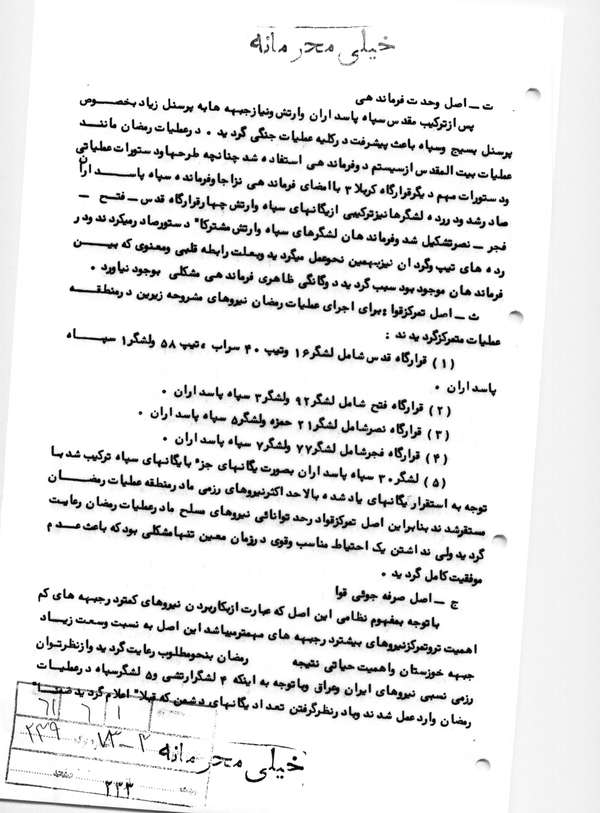 خیلی محرمانه
ت ــ اصل وحدت فرماندهی
پس از ترکیب مقدس سپاه پاسداران وارتش ونیاز جبهه ها به پرسنل زیاد بخصوص
پرسنل بسیج وسپاه باعث پیشرفت درکلیه عملیات جنگی گردید . درعملیات رمضان مانند
عملیات بیت المقدس ازسیستم دوفرماندهی استفاده شد چنانچه طرحها ودستورات عملیاتی
ودستورات مهم دیگر قرارگاه کربلا ۳ باامضای فرماندهی نزاجا وفرمانده سپاه پاسداران
صادرشد ودررده لشگرها نیزترکیبی ازیگانهای سپاه وارتش چهارقرارگاه قدس ــ فتح ــ
فجر ــ نصرتشکیل شد وفرماندهان لشگرهای سپاه وارتش مشترکا" دستورصادرمیکردند ودر
رده های تیپ وگردان نیزبهمین نحوعمل میگردید وبعلت رابطه قلبی ومعنوی که بیـــن
فرماندهان موجود بود سبب گردید دوگانگی ظاهری فرماندهی مشکلی بوجود نیاورد .
ث ــ اصل تمرکزقوا : برای اجرای عملیات رمضان نیروهای مشروحه زیرین درمنطقـــه
عملیات متمرکزگردیدند :
(۱) قرارگاه قدس شامل لشگر۱۶ وتیپ ۴۰ سراب ،تیپ ۵۸ ولشگر۱ سپـــاه
پاسداران .
(۲) قرارگاه فتح شامل لشگر۹۲ ولشگر۳ سپاه پاسداران .
(۳) قرارگاه نصرشامل لشگر۲۱ حمزه ولشگر۵ سپاه پاسداران .
(۴) قرارگاه فجرشامل لشگر۷۷ ولشگر۷ سپاه پاسداران .
(۵) لشگر۳۰ سپاه پاسداران بصورت یگانهای جز" بایگانهای سپاه ترکیب شد بـا
توجه به استقرار یگانهای یادشده بالاحداکثرنیروهای رزمی مادرمنطقه عملیات رمضــان
مستقرشدند بنابراین اصل تمرکزقوادرحد توانائی نیروهای مسلح مادرعملیات رمضان رعایت
گردید ولی نداشتن یک احتیاط مناسب وقوی درزمان معین تنهامشکلی بودکه باعث عـــدم
موفقیت کامل گردید .
ج ــ اصل صرفه جوئی قوا
باتوجه بمفهوم نظامی این اصل که عبارت ازبکاربردن نیروهای کمتردرجبهه های کم
اهمیت تروتمرکزنیروهای بیشتردرجبهه های مهمترمیباشد این اصل به نسبت وسعت زیــاد
جبهه خوزستان واهمیت حیاتی نتیجه رمضان بنحومطلوب رعایت گردید وازنظرتـوان
رزمی نسبی نیروهای ایران وعراق وباتوجه به اینکه ۴ لشگرارتشی و۵ لشگرسپاه درعملیـات
رمضان واردعمل شدند وبادرنظرگرفتن تعداد یگانهای دشمن که قبلا" اعلام گردید ضمنـا"
خیلی محرمانه
۱ ۶ ۶۱
صفحه
۲۳۳